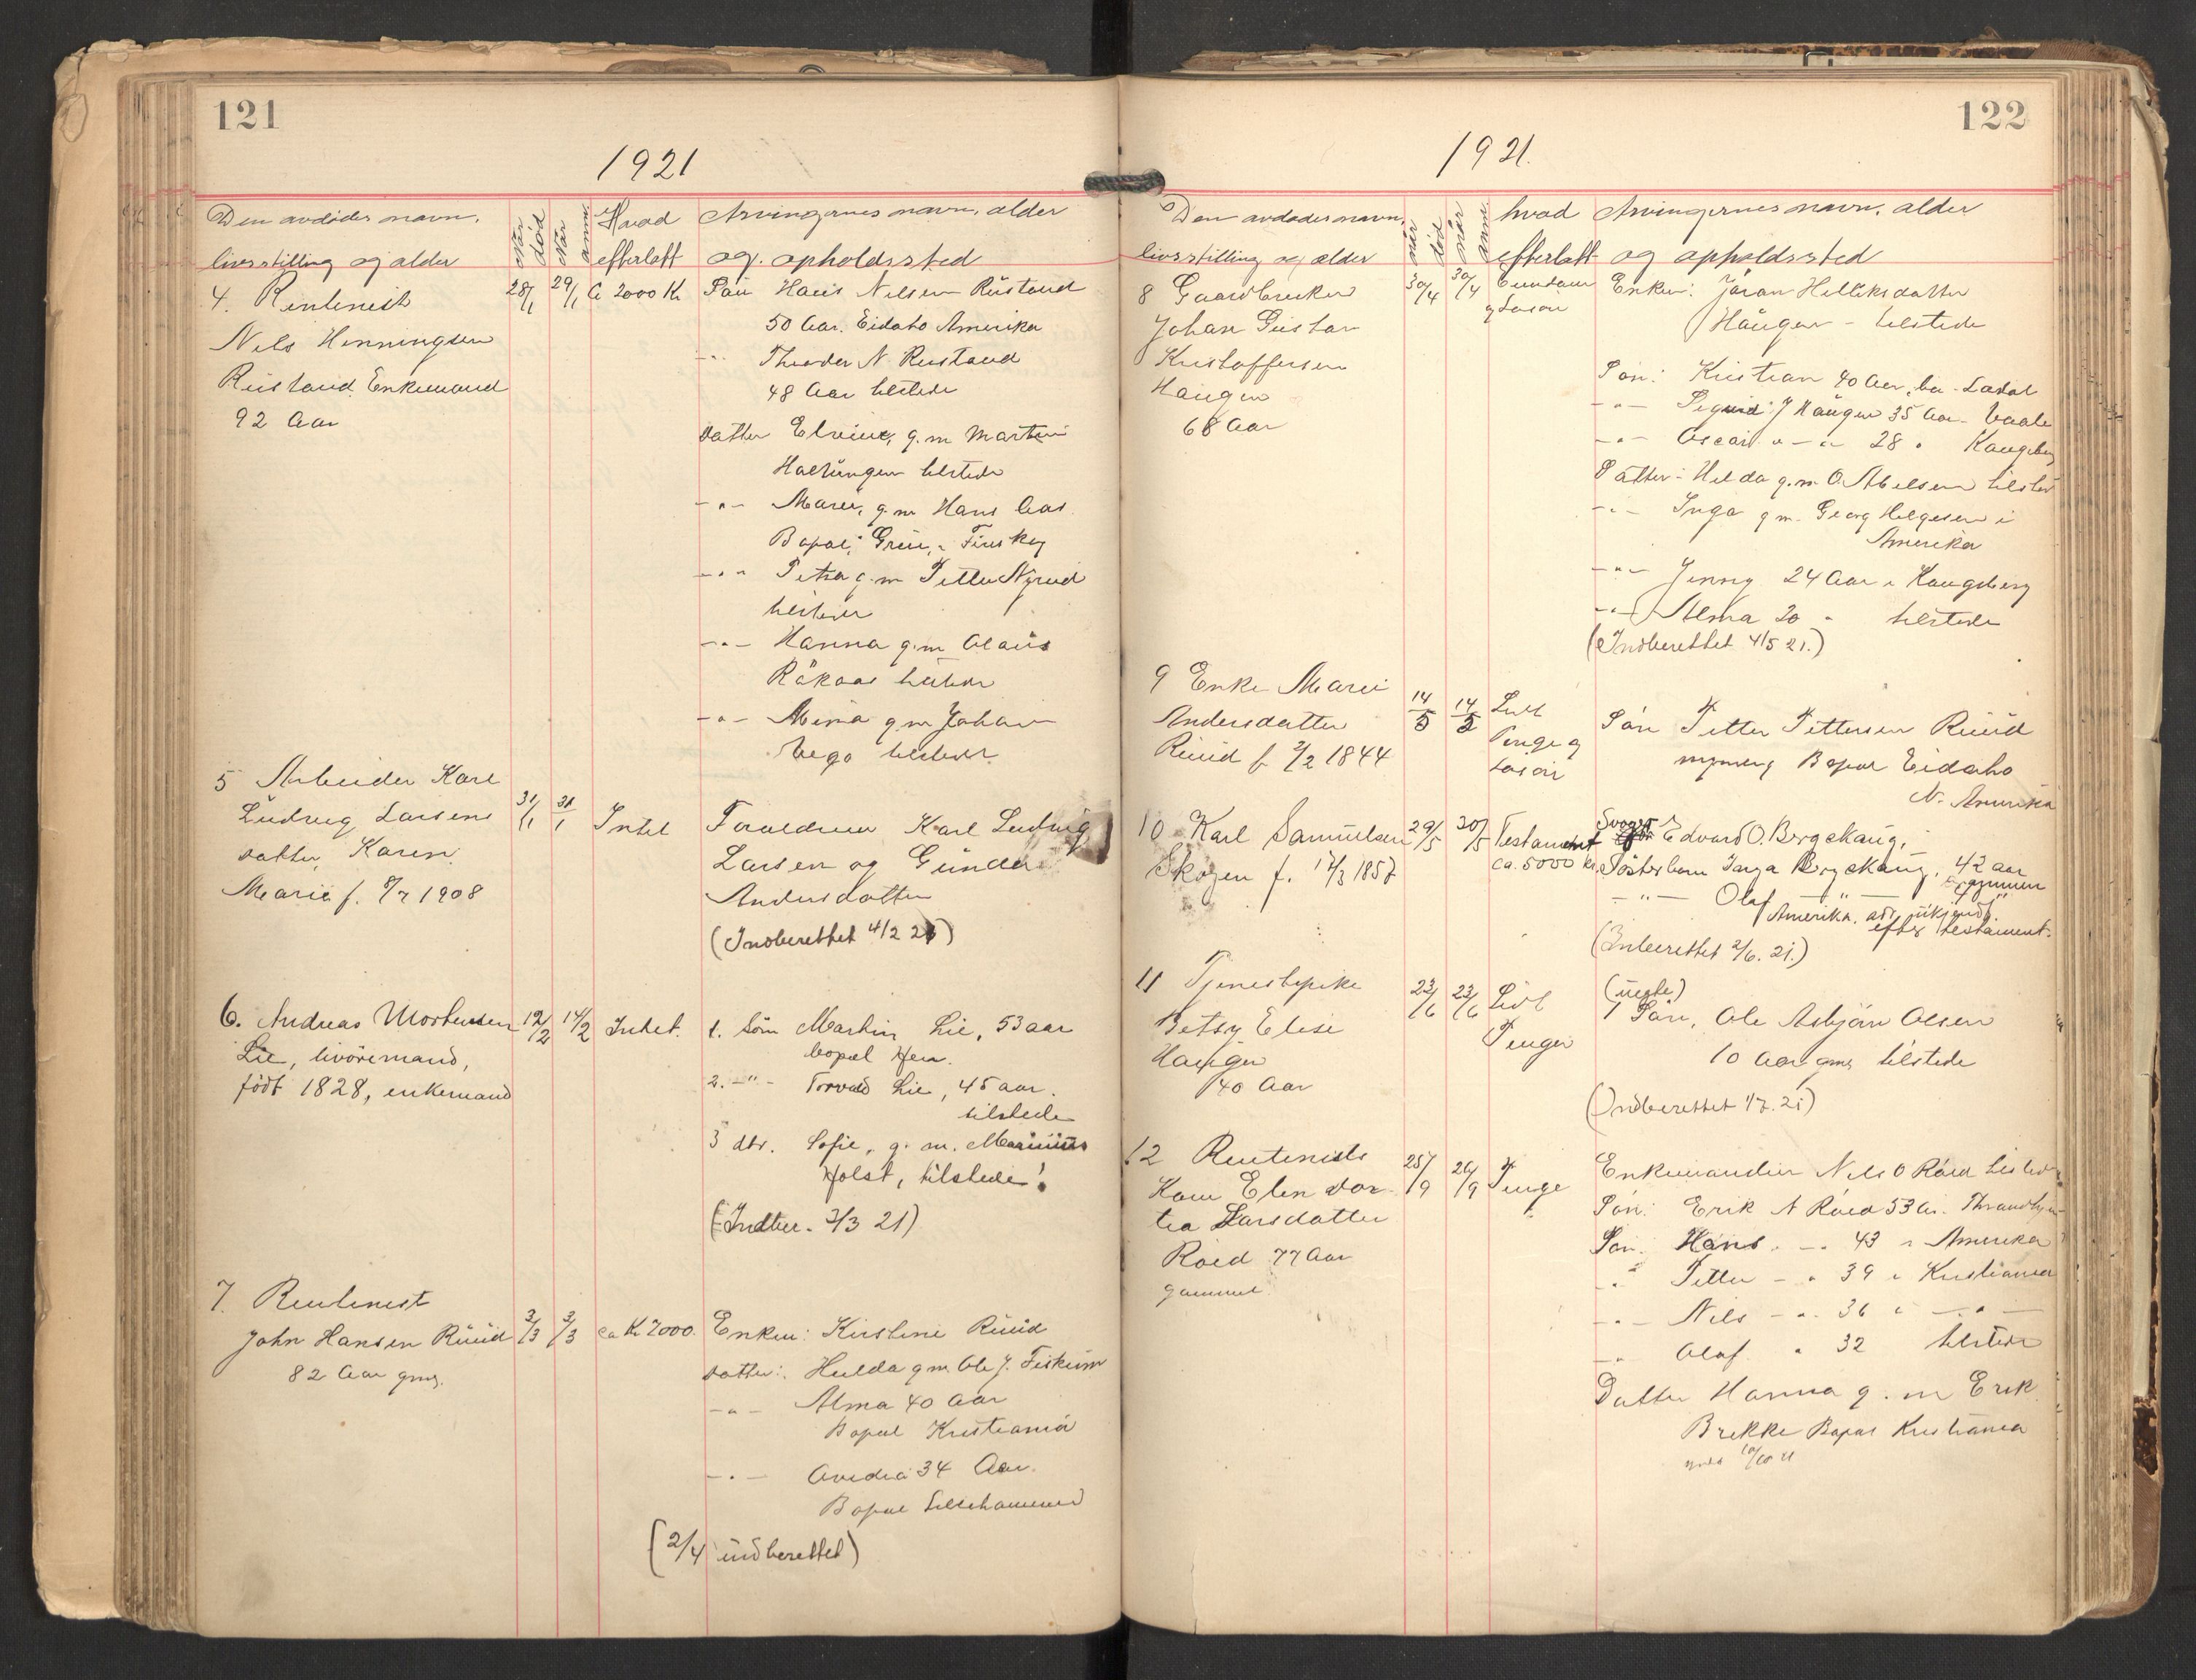 121
1921
Den avdødes navn,
livsstilling og alder
Når død
Når anm.
Hvad efterlatt
Arvingernes navn, alder
og opholdssted
4. Rentenist
Nils Henningsen
Rustand Enkemand
92 Aar
28/1
29/1
Ca 2000 Kr
Søn Hans Nilsen Rustand
50 Aar. Eidaho Amerika
-"- Theodor N. Rustand
48 Aar tilstede
datter Elvine, g.m Martin
tilstede
-"- Marie, g.m Hans Aas
Bopæl, Finskog
-"- Petra g.m Petter Nyrud
tilstede
-"- Hanna g.m Olaus
Råkaas tilstede
-"- Mina g.m Johan
Vego tilstede
5 Arbeider Karl
Ludvig Larsens
datter Karen
Marie f. 8/7 1908
31/1
31/1
Intet
Foreldrene Karl Ludvig
Larsen og Gunda
Andersdatter
(Indberettet 4/2 21)
6. Andreas Mortensen
Lie, livøremand,
født 1828, enkemand
12/2
14/2
Intet.
1. Søn Martin Lie, 53 aar
bopæl Hen.
2. -"- Torvald Lie, 45 aar.
tilstede
3 dtr. Sofie, g. m. Marinius
Holst, tilstede!
(Indber. 2/3 21)
7. Rentenist
John Hansen Ruud
82 Aar gml.
3/3
3/3
ca Kr 2000.
Enken: Kirstine Ruud
datter: Hulda g.m. Ole J. Fiskum
-"- Alma 40 Aar
Bopæl Kristiania
-"- 34 Aar.
Bopæl Lillehammer
(2/4 indberettet)
122
1921.
Den avdødes navn,
livsstilling og alder
når død
når anm.
hvad efterlatt
Arvingernes navn, alder
og opholdssted
8 Gaardbruker
Johan Gustav
Kristoffersen
Haugen
68 Aar
30/4
30/4
Eiendom
og Løsøre
Enken: Jøran Helliksdatter
Haugen - tilstede
Søn: Kristian 40 Aar,
-"- Sigurd J Haugen 35 Aar - Vaale
-"- Oscar -"- 28 " Kongsberg
Datter: Helda g.m. O. Abelsen tilsted
-"- Inga g m. Georg Helgesen i
Amerika
-"- Jenny 24 Aar i Kongsberg
-"- Alma 20 " tilstede
(Indberettet 4/5 21.)
9 Enke Marie
Andersdatter
Ruud f 2/2 1844
14/5
14/5
Litt
Penge og
Løsøre
Søn Petter Pettersen Ruud
myndig Bopæl Eidaho
N. Amerika
10 Karl Samuelsen
Skogen f. 14/3 1857
29/5
30/5
Testament
ca. 5000 kr.
Svoger Edvard O. Bergskaug,
Søsterbarn Inga Bergskaug, 42 aar
gammel
-"- Olaf -"-
Amerika. adr. ukjendt.
efter testament.
(Indberettet 2/6. 21.)
11 Tjenestepike
Betsy Elise
Haugen
40 Aar
23/6
23/6
Lidt
Penger
(uegte)
1 Søn, Ole Asbjørn Olsen
10 Aar gml tilstede
(Indberettet 1/7. 21)
12 Rentenists
Kone Elen Dor-
tea Larsdatter
Røed 77 Aar
gammel
25/9
26/9
Penge
Enkemanden Nils O Røed tilstede
Søn: Erik N Røed 53 Aar.
Søn: Hans -"- 43 i Amerika
-"- Petter -"- 39 i Kristiania
-"- Nils -"- 36 i -"-
-"- Olaf " 32 tilstede
Datter Hanna g. m Erik
Brekke Bopæl Kristiania
10/10 21